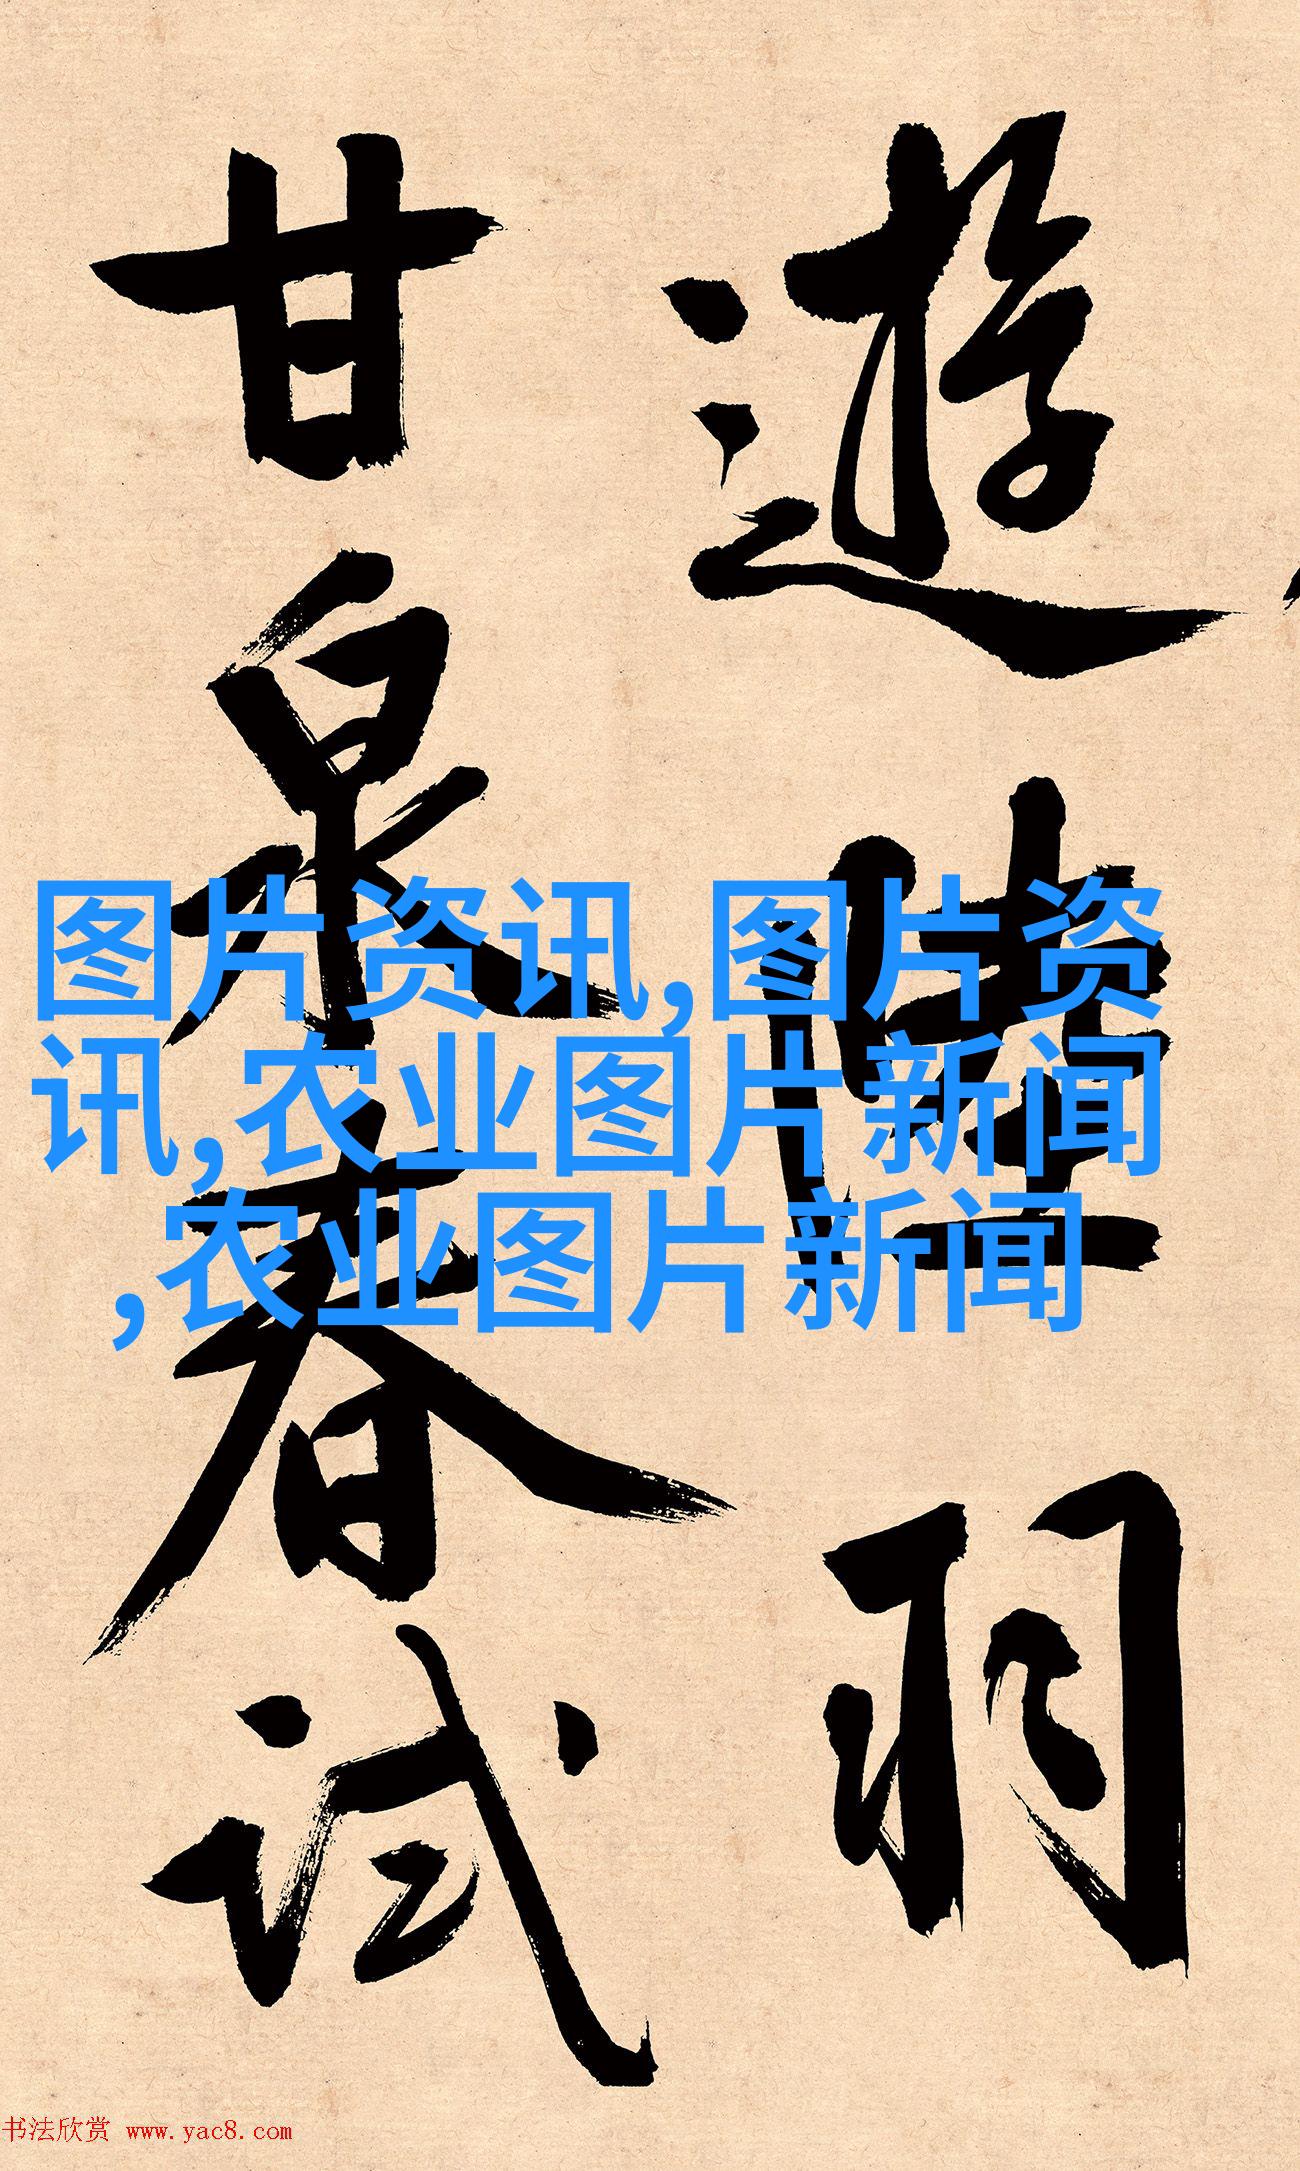 遊陸羽
甘泉春試
图片资讯,图片资
讯,农业图片新闻
,农业图片新闻
书法欣赏 www.yac8.com